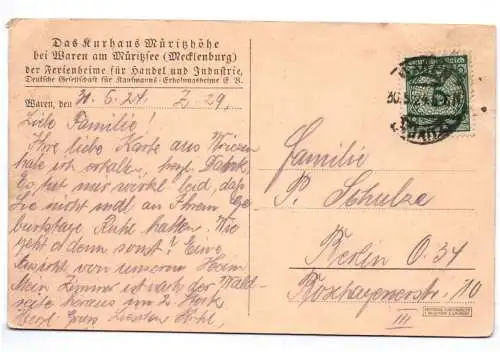 Das Kurhaus Müritzhöhe
bei Waren am Müritzsee (Mecklenburg)
der Ferienheime für Handel und Industrie,
Deutsche Gesellschaft für Kaufmanns-Erholungsheime E. V.
Waren, den 30. 6. 24. Z. 29,
Liebe Familie!
Ihre liebe Karte aus
habe ich erhalten, herzl. Dank.
Es tut mir wirkl leid, daß
Sie nicht mal an Ihrem Ge-
burtstage Ruhe hatten. Wie
geht es denn sonst? Eine
Ansicht von unserm Heim
Mein Zimmer ist nach der Wald-
seite heraus im 2. Stock
Herzl. Gruss
Familie
P. Schulze
Berlin O. 34
10
III
Deutsches Reich
5
30. 24